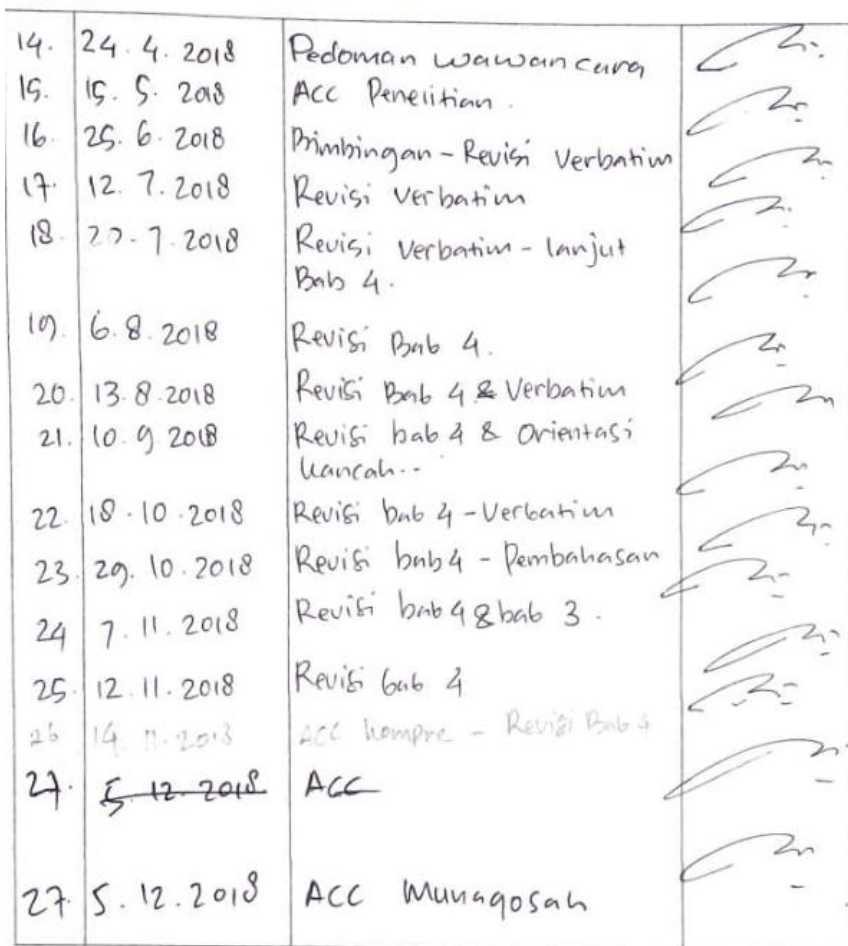 14. 24. 4. 2018 Pedoman wawancara
15. 15. 5. 2018 ACC Penelitian.
16. 25. 6. 2018 Bimbingan - Revisi Verbatim
17. 12. 7. 2018 Revisi Verbatim
18. 20. 7. 2018 Revisi Verbatim - lanjut
Bab 4.
19. 6. 8. 2018 Revisi Bab 4.
20. 13. 8. 2018 Revisi Bab 4 & Verbatim
21. 10. 9 2018 Revisi bab 4 & Orientasi
kancah..
22. 18. 10. 2018 Revisi bab 4 - Verbatim
23. 29. 10. 2018 Revisi bab 4 - Pembahasan
24 7. 11. 2018 Revisi bab 4 & bab 3.
25. 12. 11. 2018 Revisi bab 4
26 14. 11. 2018 ACC kompre - Revisi Bab 4
27. 5. 12. 2018 ACC
27. 5. 12. 2018 ACC Munaqosah